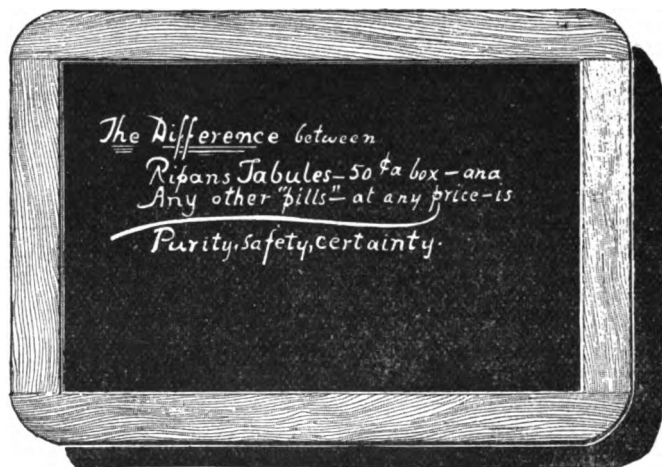 The Difference between
Ripans Tabules—50¢ a box—and
Any other "pills"—at any price—is
Purity, safety, certainty.